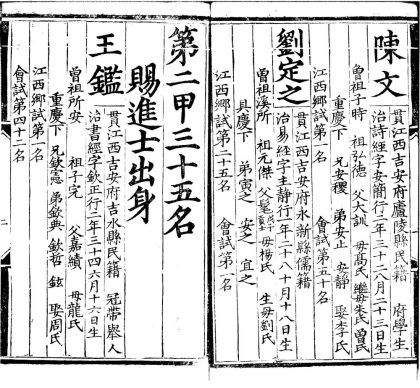 陳文 貫江西吉安府廬陵縣民籍 府學生
治詩經字安簡行二年三十二八月二十三日生
曾祖子時 祖弘德 父大訓 母高氏 繼母朱氏 曾氏
重慶下 兄安稷 弟安止 安靜 娶李氏
江西鄉試第一名 會試第五十名
劉定之 貫江西吉安府永新縣儒籍
治易經字主靜行一年二十八十月十八日生
曾祖溪所 祖元傑 父髦 母楊氏 生母劉氏
具慶下 弟寅之 安之 宜之
江西鄉試第二十五名 會試第一名
第二甲三十五名
賜進士出身
王鑑 貫江西吉安府吉水縣民籍 冠帶舉人
治書經字欽正行二年三十四六月十六日生
曾祖所安 祖子完 父嘉績 母龍氏
重慶下 兄欽憲 弟欽典 欽哲 鉉 娶周氏
江西鄉試第一名
會試第四十二名